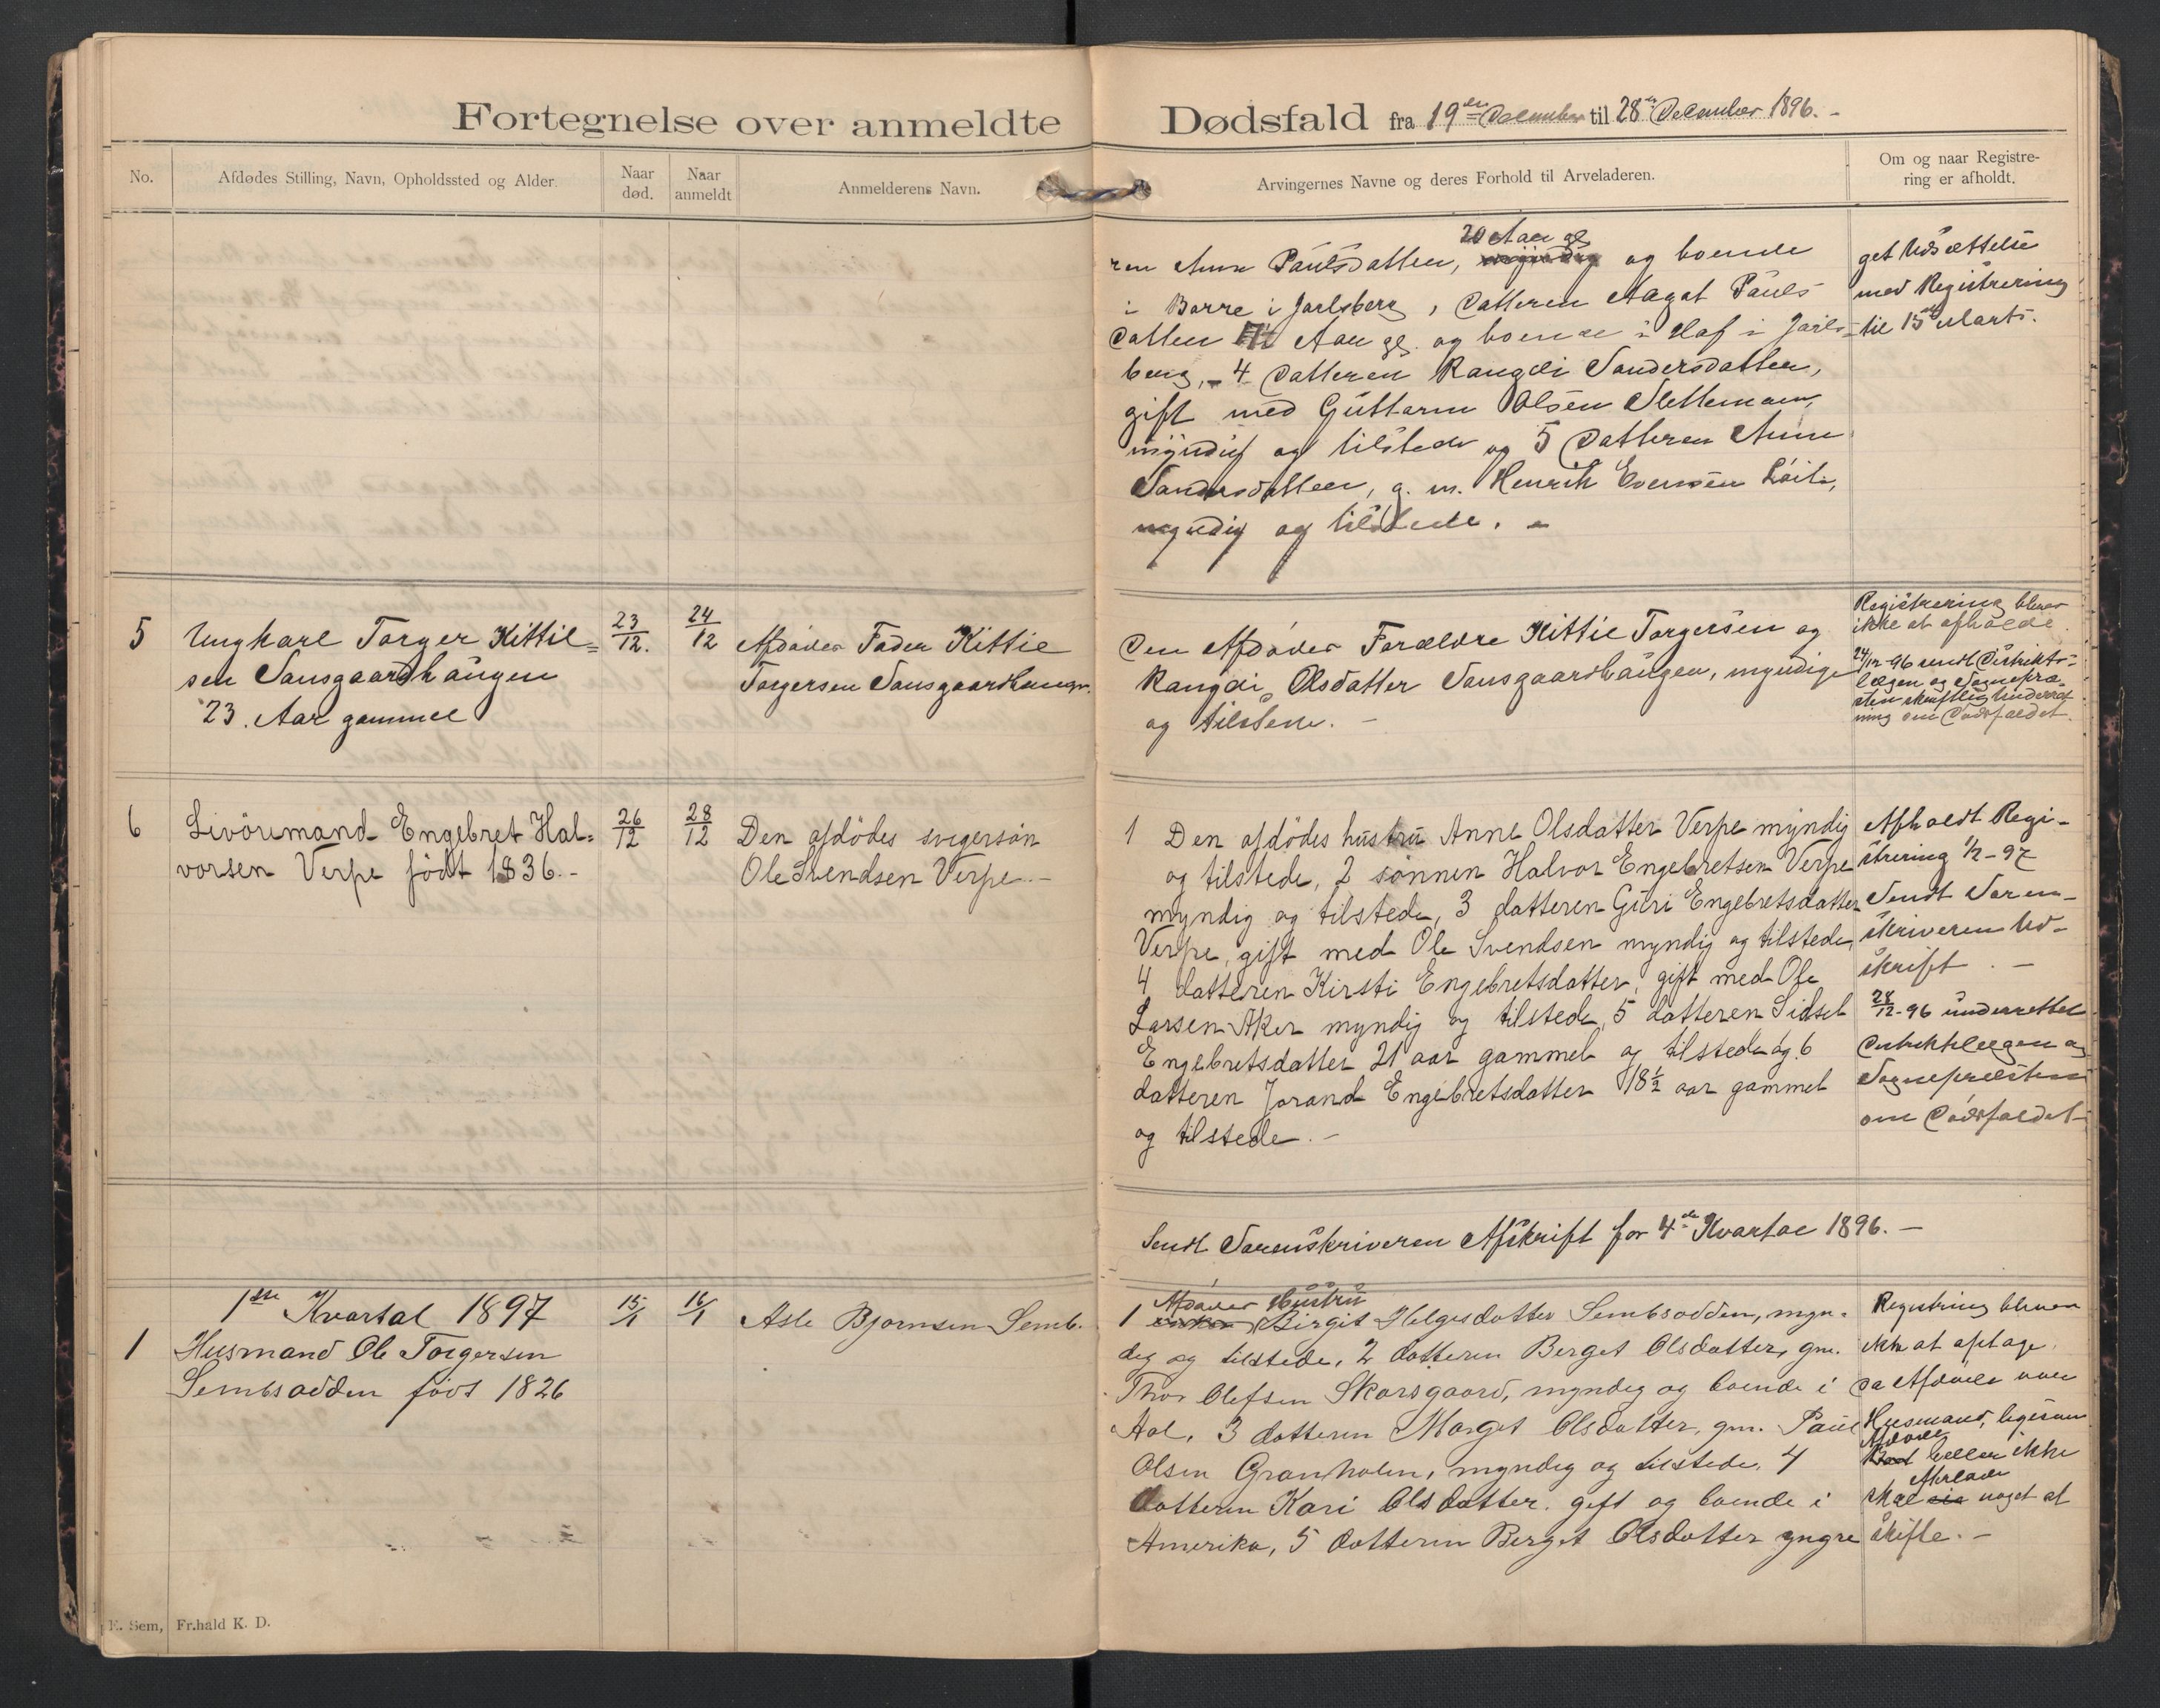 Fortegnelse over anmeldte Dødsfald fra 19de December til 28de December 1896. -
No.
Afdødes Stilling, Navn, Opholdssted og Alder.
Naar død.
Naar anmeldt
Anmelderens Navn.
Arvingernes Navne og deres Forhold til Arveladeren.
Om og naar Registrering er afholdt.
20 Aar gl
ren Anne Paulsdatter, myndig og boende
i Borre i Jarlsberg, Datteren Aagot Pauls
datter Aar gl. og boende i Haf i Jarls-
berg, - 4 Datteren Rangdi Sandersdatter,
gift med Guttorm Olsen Slettemoen,
myndig og tilstede og 5 Datteren Anne
Sandersdatter, g. m. Henrik Evensen
myndig og tilstede. -
get Udsættelse
med Registrering
til 15de Marts.
5
Ungkarl Torger Kittil=
sen Sausgaardhaugen
23. Aar gammel
23/12.
24/12
Afdødes Fader Kittil
Torgersen Sausgaardhaugen.
Den Afdødes Forældre Kittil Torgersen og
Rangdi Olsdatter Sausgaardhaugen, myndige
og tilstede. -
Registrering bliver
ikke at afholde.
24/12-96 sendt Distrikts-
lægen og Sognepræ-
sten skriftlig Underret-
ning om Dødsfaldet.
6
Livöremand Engebret Hal=
vorsen Verpe födt 1836.-
26/12
28/12
Den afdödes svigersön
Ole Svendsen Verpe.-
1 Den afdödes hustru Anne Olsdatter Verpe myndig
og tilstede, 2 sönnen Halvor Engebretsen Verpe
myndig og tilstede, 3 datteren Guri Engebretsdatter
Verpe, gift med Ole Svendsen myndig og tilstede,
4 datteren Kirsti Engebretsdatter, gift med Ole
Larsen Aker myndig og tilstede, 5 datteren Sidsel
Engebretsdatter 21 aar gammel og tilstede og 6
datteren Jorand Engebretsdatter 18½ aar gammel
og tilstede.-
Afholdt Regi-
strering 1/2-97
Sendt Soren-
skriveren Ud-
skrift. -
28/12-96 underrettet
Distriktslægen og
Sognepræsten
om Dødsfaldet
Sendt Sorenskriveren Afskrift for 4de Kvartal 1896. -
1ste Kvartal 1897
1
Husmand Ole Torgersen
Sembsodden født 1826
15/1
16/1
Asle Bjørnsen Semb.
Afdødes Hustru
1 enken Birgit Helgesdatter Sembsodden, myn-
dig og tilstede, 2 datteren Berget Olsdatter, gm.
Thor Olefsen Skarsgaard, myndig og boende i
Aal, 3 datteren Marget Olsdatter, gm. Paul
Olsen Granholm, myndig og tilstede, 4
datteren Kari Olsdatter. gift og boende i
Amerika, 5 datteren Berget Olsdatter yngre
Registring bliver
ikke at optage,
da Afdøde var
Husmand, ligesom
Afdøde
heller ikke
Afdøde
skal noget at
skifte. -
E. Sem, Fr.hald K. D.